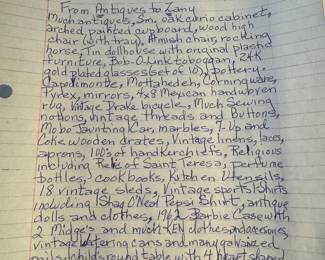 From Antiques to Zany
Much antiques, Sm. oak curio cabinet,
arched painted cupboard, wood high
chair (with tray), Amish chair, rocking
horse, Tin dollhouse with original plastic
furniture, Bob-O-Link toboggan, 24K
gold plated glasses (set of 10), pottery:
Capodimonte, Mottahedeh, Corningware,
Pyrex, mirrors, 4x8 Mexican handwoven
rug, Vintage Drake bicycle, Much Sewing
notions, vintage threads and Buttons,
Mobo Jaunting Car, marbles, 7-Up and
Coke wooden crates, Vintage linens, laces,
aprons, 100's of handkerchiefs, Religious
including Relic of Saint Teresa, perfume
bottles, cookbooks, Kitchen Utensils,
18 vintage sleds, Vintage sports T-Shirts
including Shaq O'Neal Pepsi Shirt, antique
dolls and clothes, 1962 Barbie Case with
2 Midge's and much KEN clothes and accessories,
vintage watering cans and many galvanized
child's round table with 4 heart shaped